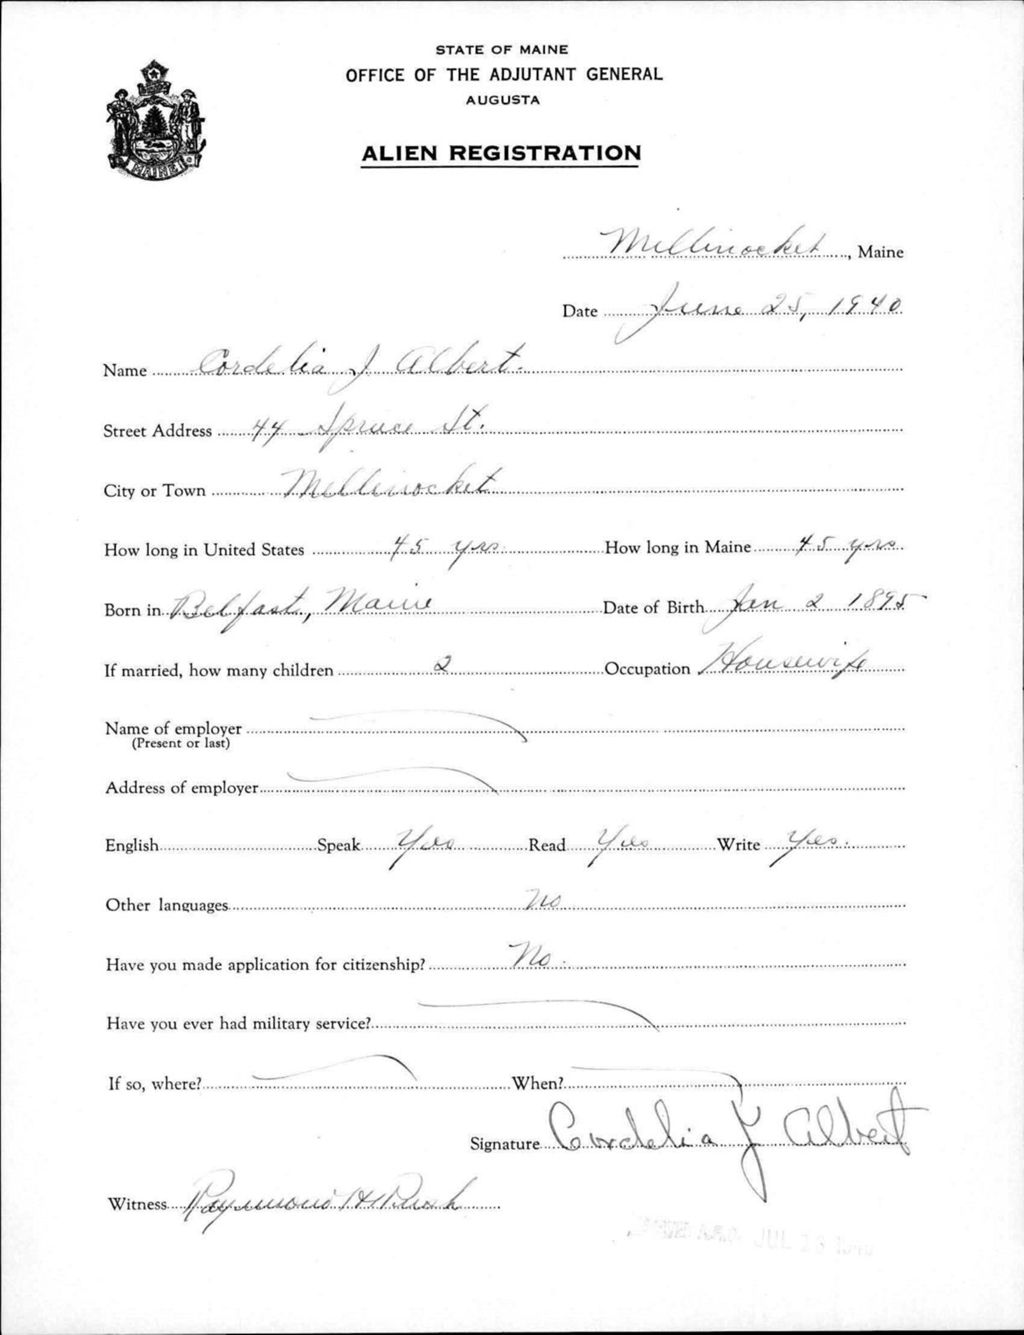 STATE OF MAINE
OFFICE OF THE ADJUTANT GENERAL
AUGUSTA
ALIEN REGISTRATION
MAINE
Millinocket, Maine
Date June 25, 1940
Name Cordelia J Albert.
Street Address 44 Spruce St.
City or Town Millinocket
How long in United States 45 yrs. How long in Maine 45 yrs.
Born in Belfast, Maine Date of Birth Jan 2 1895
If married, how many children 2 Occupation Housewife
Name of employer
(Present or last)
Address of employer
English Speak Yes Read Yes Write Yes.
Other languages no
Have you made application for citizenship? No.
Have you ever had military service?
If so, where? When?
Signature Cordelia J Albert
Witness Raymond H
JUL